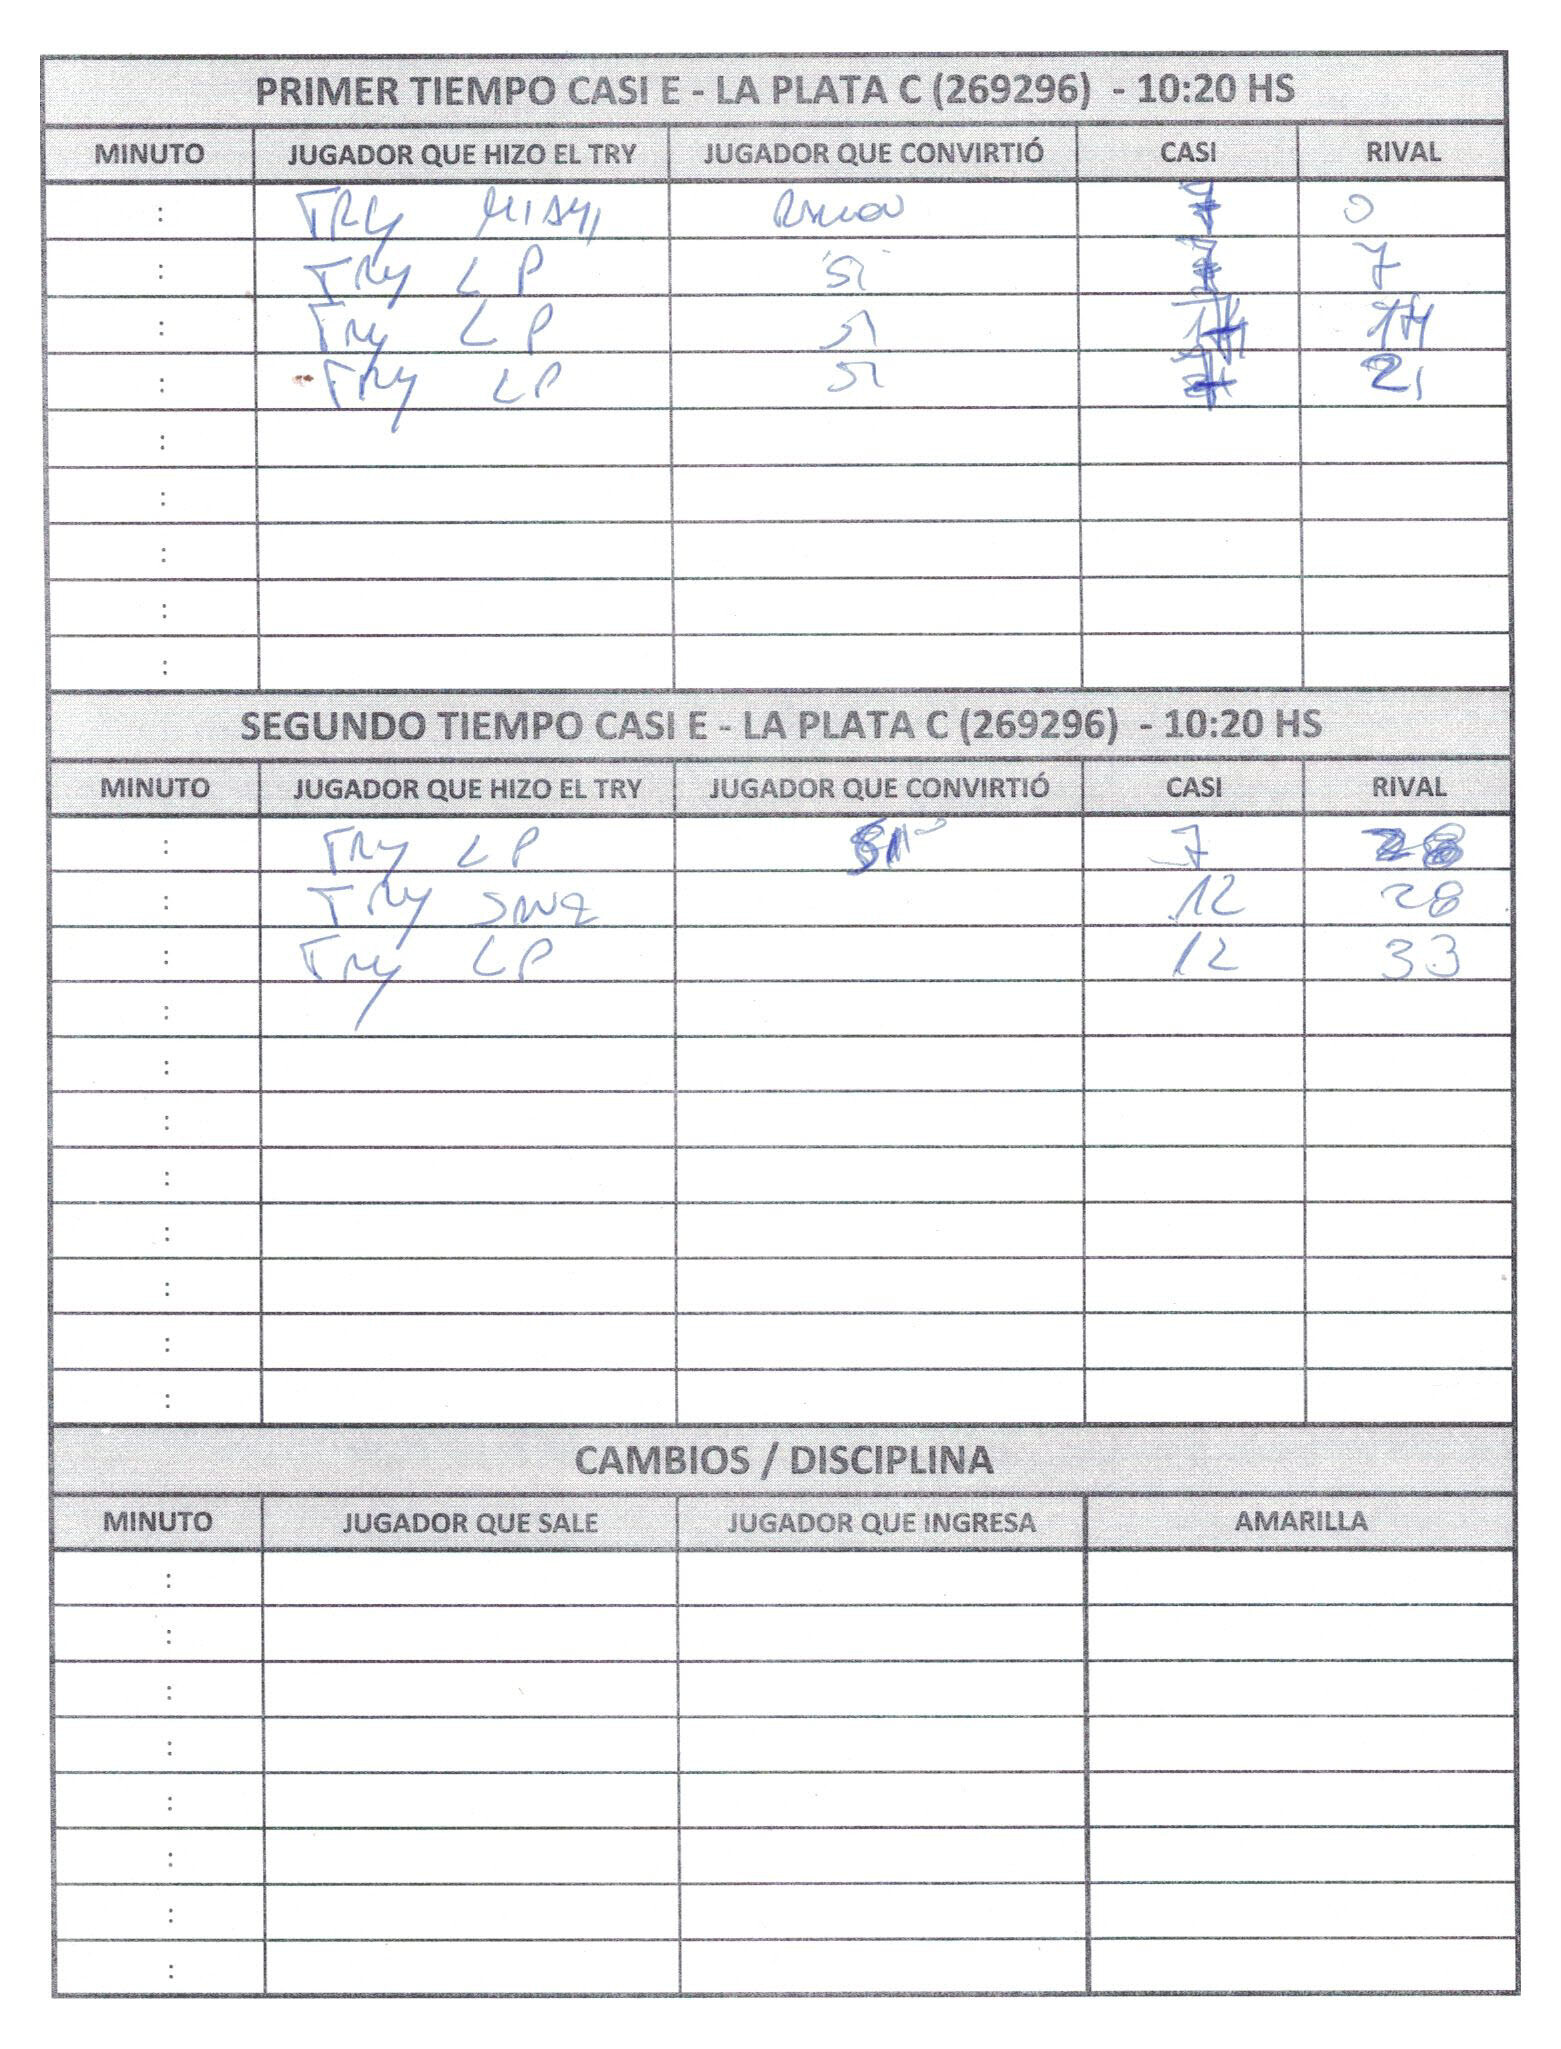 PRIMER TIEMPO CASI E - LA PLATA C (269296) - 10:20 HS
MINUTO JUGADOR QUE HIZO EL TRY JUGADOR QUE CONVIRTIÓ CASI RIVAL
: TRY 7 0
: TRY LP SI 7 7
: TRY LP SI 14
: TRY LP SI 21
:
:
:
:
:
SEGUNDO TIEMPO CASI E - LA PLATA C (269296) - 10:20 HS
MINUTO JUGADOR QUE HIZO EL TRY JUGADOR QUE CONVIRTIÓ CASI RIVAL
: TRY LP SI 7 28
: TRY 12 28
: TRY LP 12 33
:
:
:
:
:
:
:
:
CAMBIOS / DISCIPLINA
MINUTO JUGADOR QUE SALE JUGADOR QUE INGRESA AMARILLA
:
:
:
:
:
:
:
: